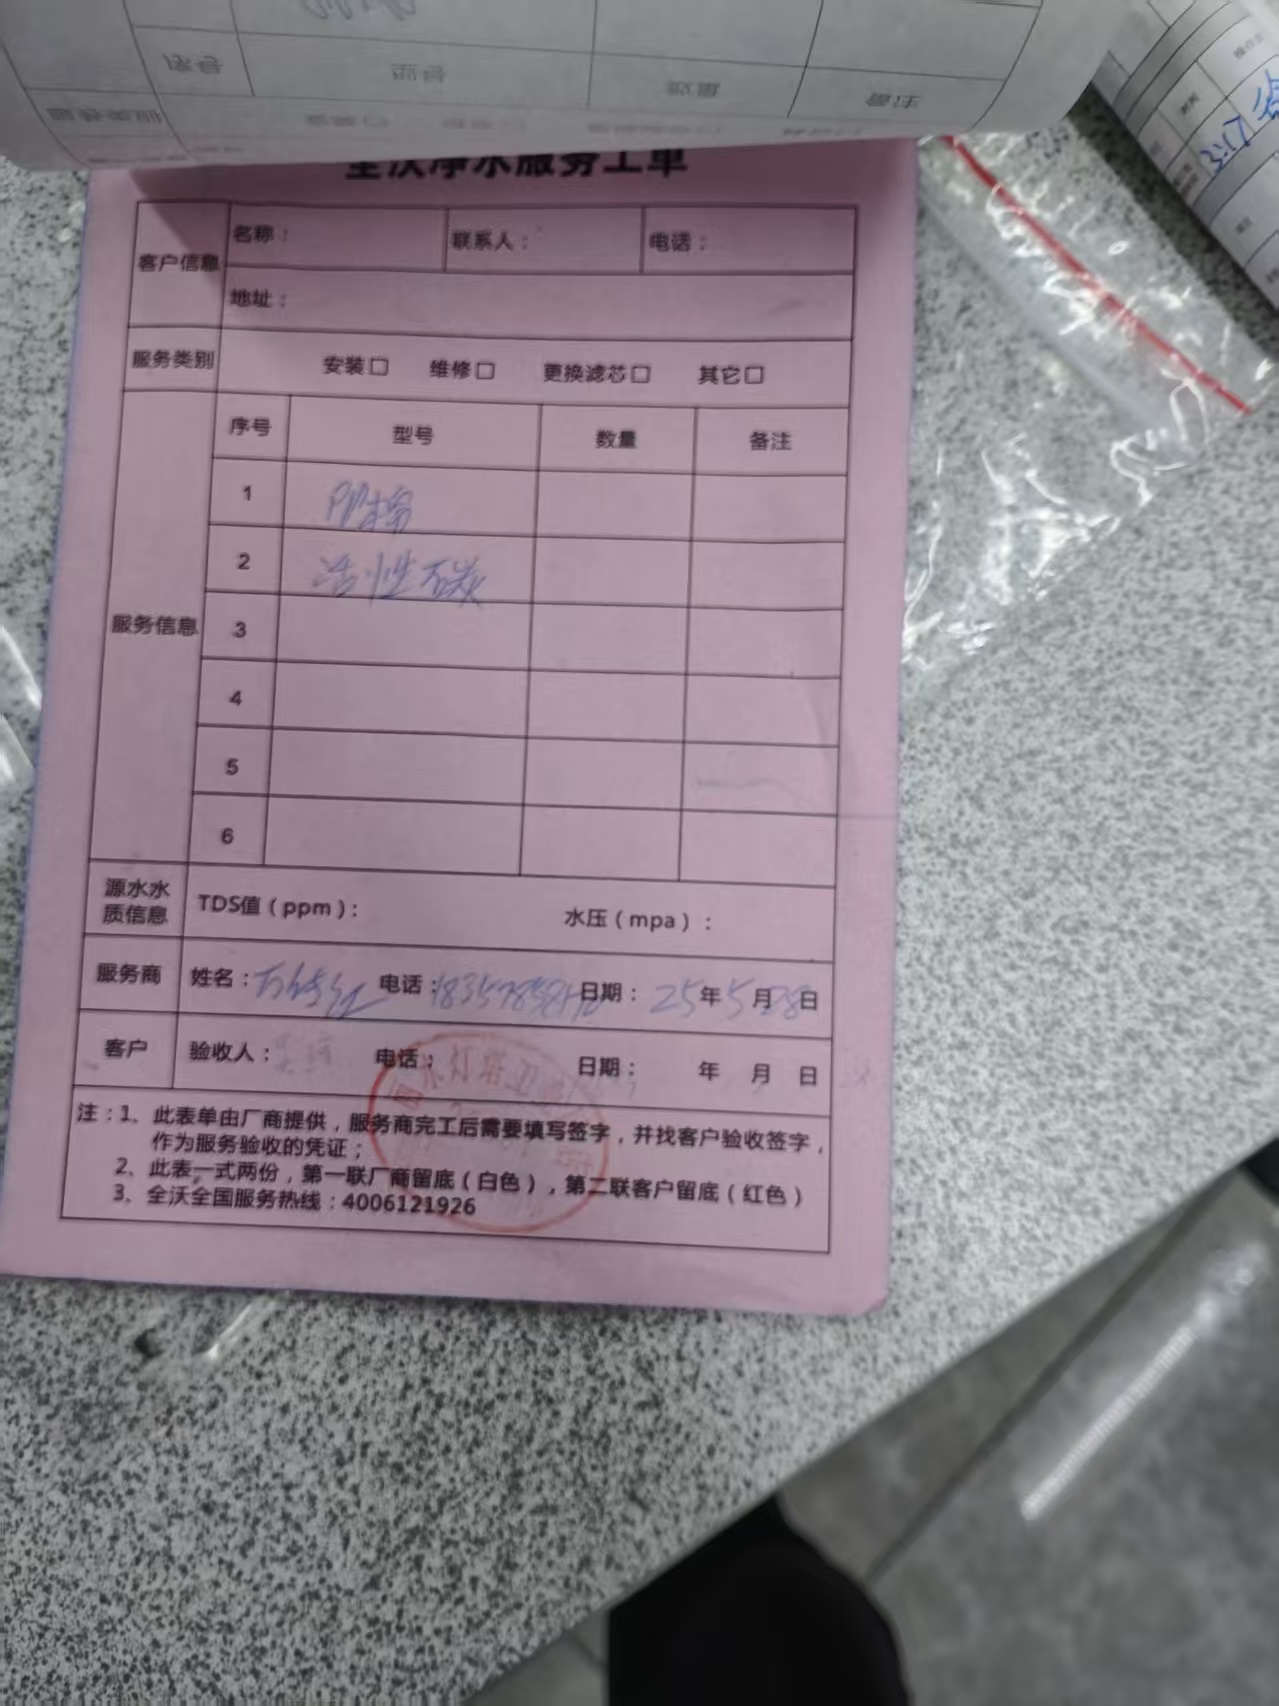 序号 型号 数量 备注
全沃净水服务工单
客户信息 名称： 联系人： 电话：
地址：
服务类别 安装□ 维修□ 更换滤芯□ 其它□
服务信息 序号 型号 数量 备注
1 PP棉
2 活性碳
3
4
5
6
源水水质信息 TDS值（ppm）： 水压（mpa）：
服务商 姓名： 电话： 日期：25年5月28日
客户 验收人： 电话： 日期： 年 月 日
注：1、此表单由厂商提供，服务商完工后需要填写签字，并找客户验收签字，
作为服务验收的凭证；
2、此表一式两份，第一联厂商留底（白色），第二联客户留底（红色）
3、全沃全国服务热线：4006121926